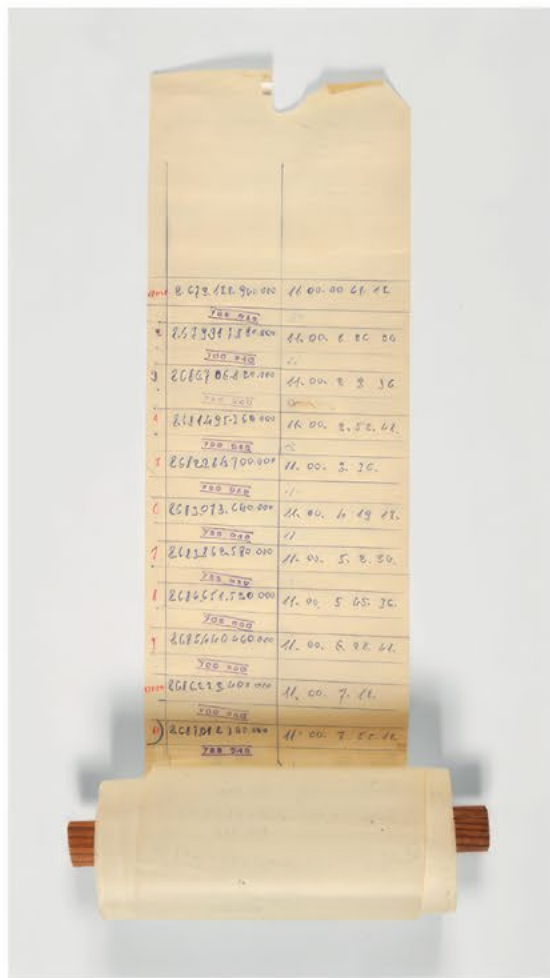 2679.128.940.000 11.00.00 43.12
788 940
2 2679917880.000 11.00. 1 26 24
788 940
3 2680706820.000 11.00 2 9 36
788 940
4 2681495760.000 11.00 2.52.48.
788 940
5 2682284700.000 11.00. 3.36.
788 940
6 2683073.640.000 11.00. 4 19 12.
788 940
7 2683862.580.000 11.00. 5.2.24.
788 940
8 2684651.520.000 11.00 5 45.36.
788 940
9 2685440460.000 11.00. 6 28 48.
788 940
2686229400.000 11.00. 7.12.
788 940
11 2687018340.000 11.00 7 55.12
788 940